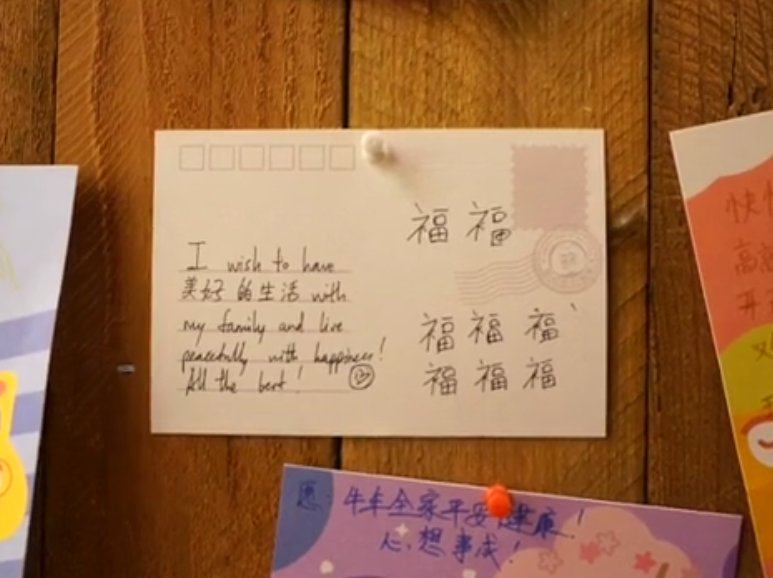 福 福
I wish to have
美好的生活 with
my family and live
peacefully with happiness!
All the best!
福 福 福
福 福 福
愿: 牛年全家平安健康!
心想事成!